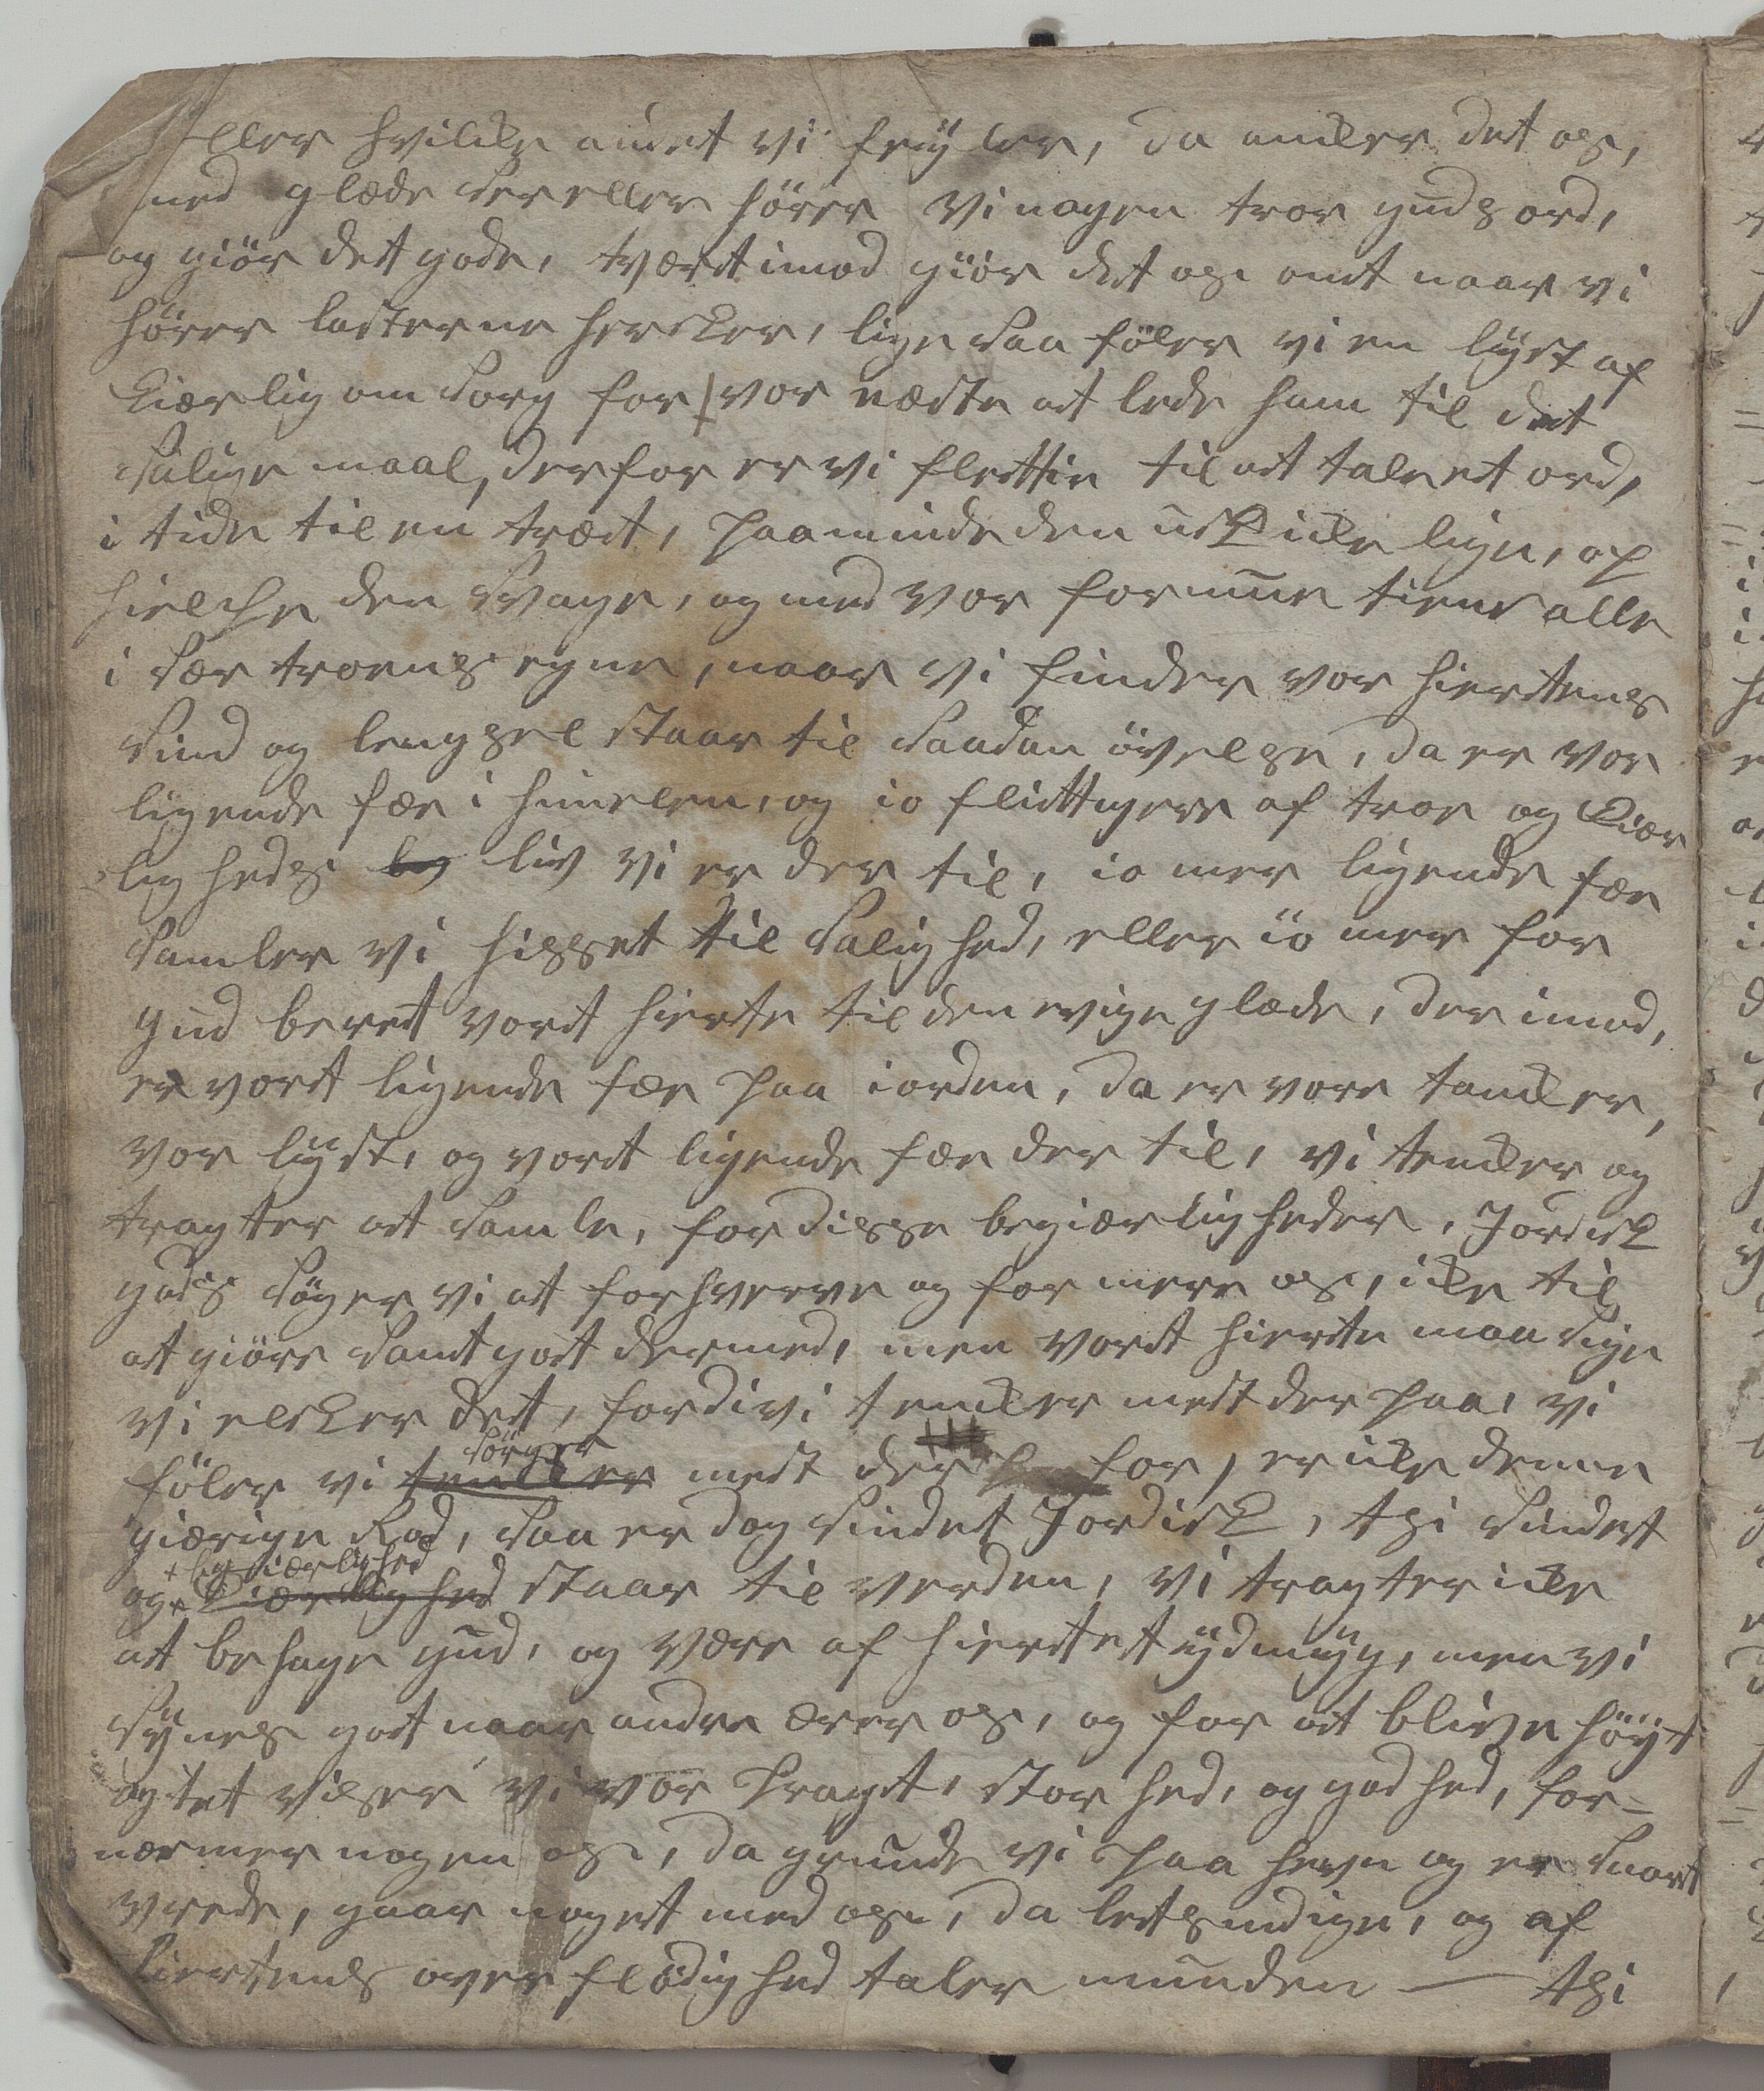 eller hvilke andet vi feyler, da anker det os,
med glæde ser eller hörer vi nogen tror guds ord,
og giör det gode, tvært imod giör det os ondt naar vi
hörer lasterne hersker, lige saa föler vi en lyst af
kiærlig om sorg for vor næste at lede ham til det
salige maal, derfor er vi flettie til at tale et ord,
i tide til en træt, paaminde den uskikelige, op
hielpe den svage, og med vor formue tiene alle
i sær troens egne, naar vi finder vor hiertens
sind og lengsel staar til saadan övelse, da er vor
ligende fæe i himelen, og io flittigere af troe og kiær
lig heds liv vi er der til, io mer ligende fæe
samler vi hisset til salighed, eller io mer for
gud beret vort hierte til den evige glæde, der imod,
er vort ligende fæe paa iorden, da er vore tanker,
vor lyst, og vort ligende fæe der til, vi tenker og
tragter at samle, for disse begiærligheder, Jordisk
gods söger vi at forhverve og for mere os, ike til
at giöre samt got dermed, men vort hierte maa sige
vi elsker det, fordi vi tenker mest der paa, vi
föler vi tenker sörger mest der for, er ike denne
giærige Rod, saa er dog sindet Jordisk, thi sindet
og + kiærlighed + begiærlighed staar til verden, vi tragter ike
at behage gud, og være af hiertet ydmyg, men vi
synes got naar andre ærer os, og for at blive höyt
agtet viser vi vor Pragt, stor hed, og god hed, for-
nærmer nogen os, da grunde vi paa hevn og er snart
vrede, gaar noget med os, da letsindige, og af
hiertens overflödighed taler munden — thi